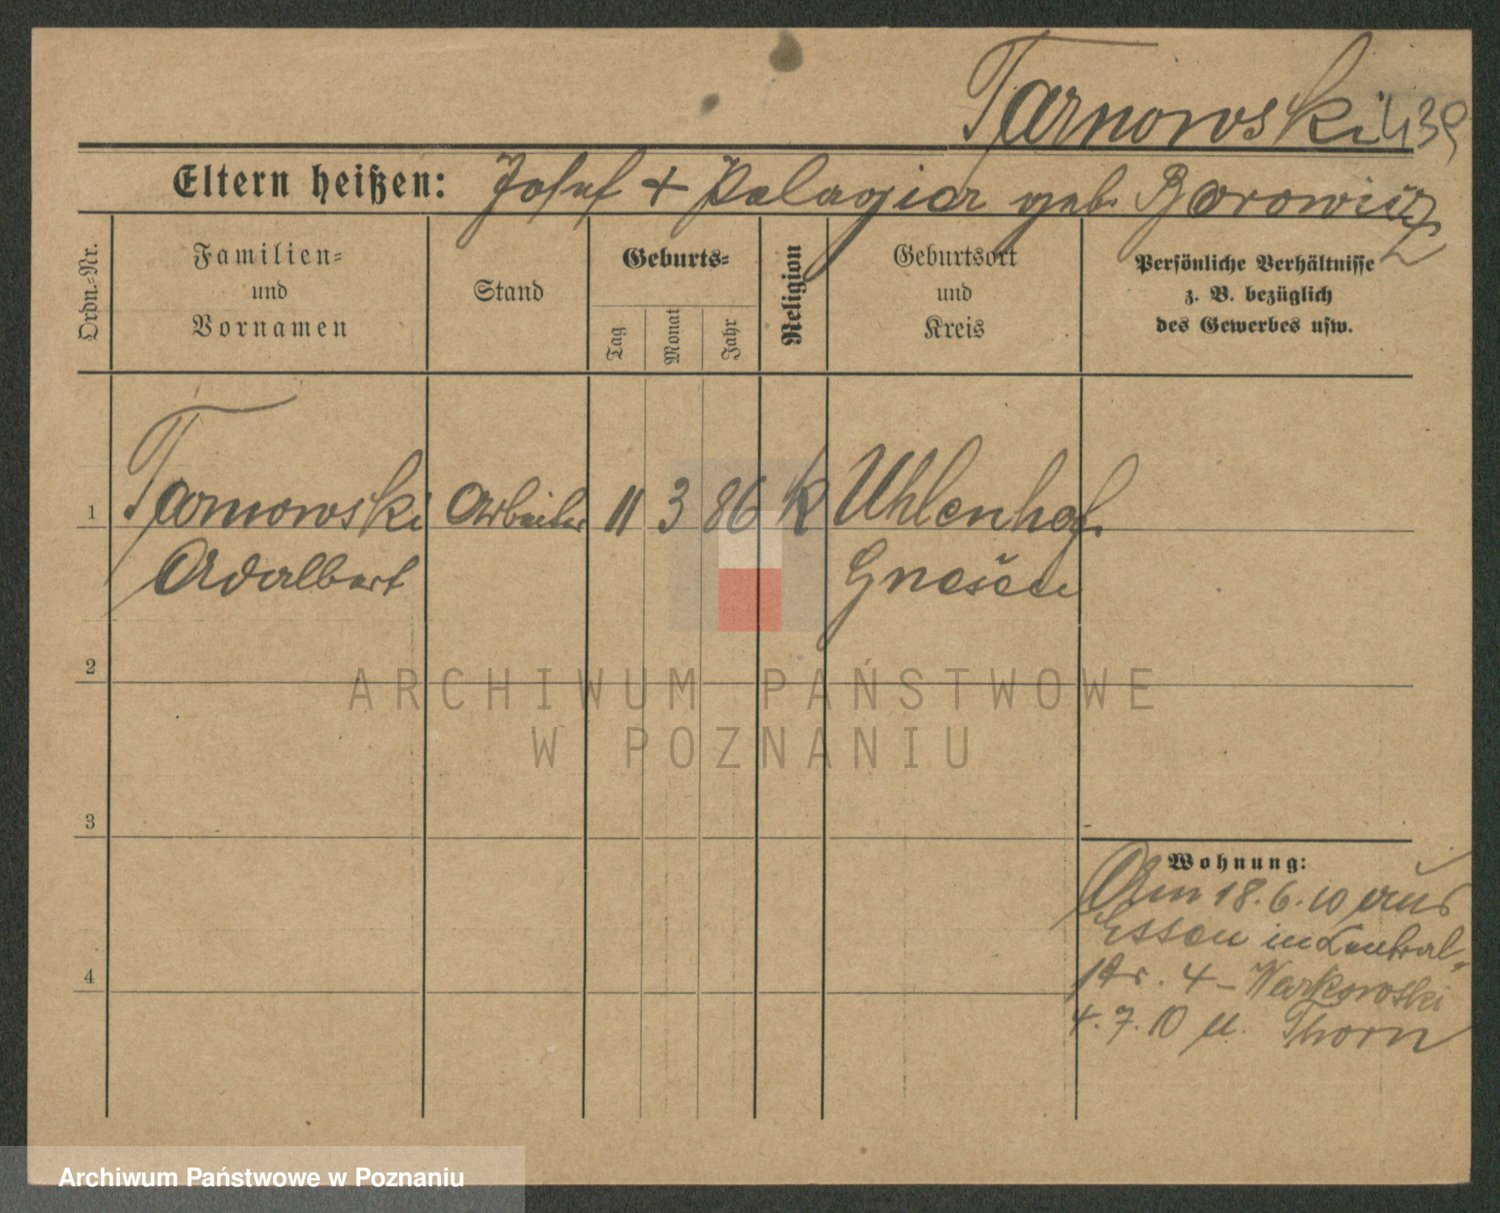 Tarnowski 439
Eltern heißen: Josef + Pelagia geb. Borowicz
Ordn.-Nr.
Familien-
und
Vornamen
Stand
Geburts-
Tag
Monat
Jahr
Religion
Geburtsort
und
Kreis
Persönliche Verhältnisse
z. B. bezüglich
des Gewerbes usw.
1 Tarnowski Arbeiter 11 3 86 K Uhlenhof.
Adalbert Gnesen
2
3
4
Wohnung:
Am 18.6.10 aus
Essen in Zentral-
str. 4 - Warkowski
4.7.10 u. Thorn
ARCHIWUM PAŃSTWOWE
W POZNANIU
Archiwum Państwowe w Poznaniu